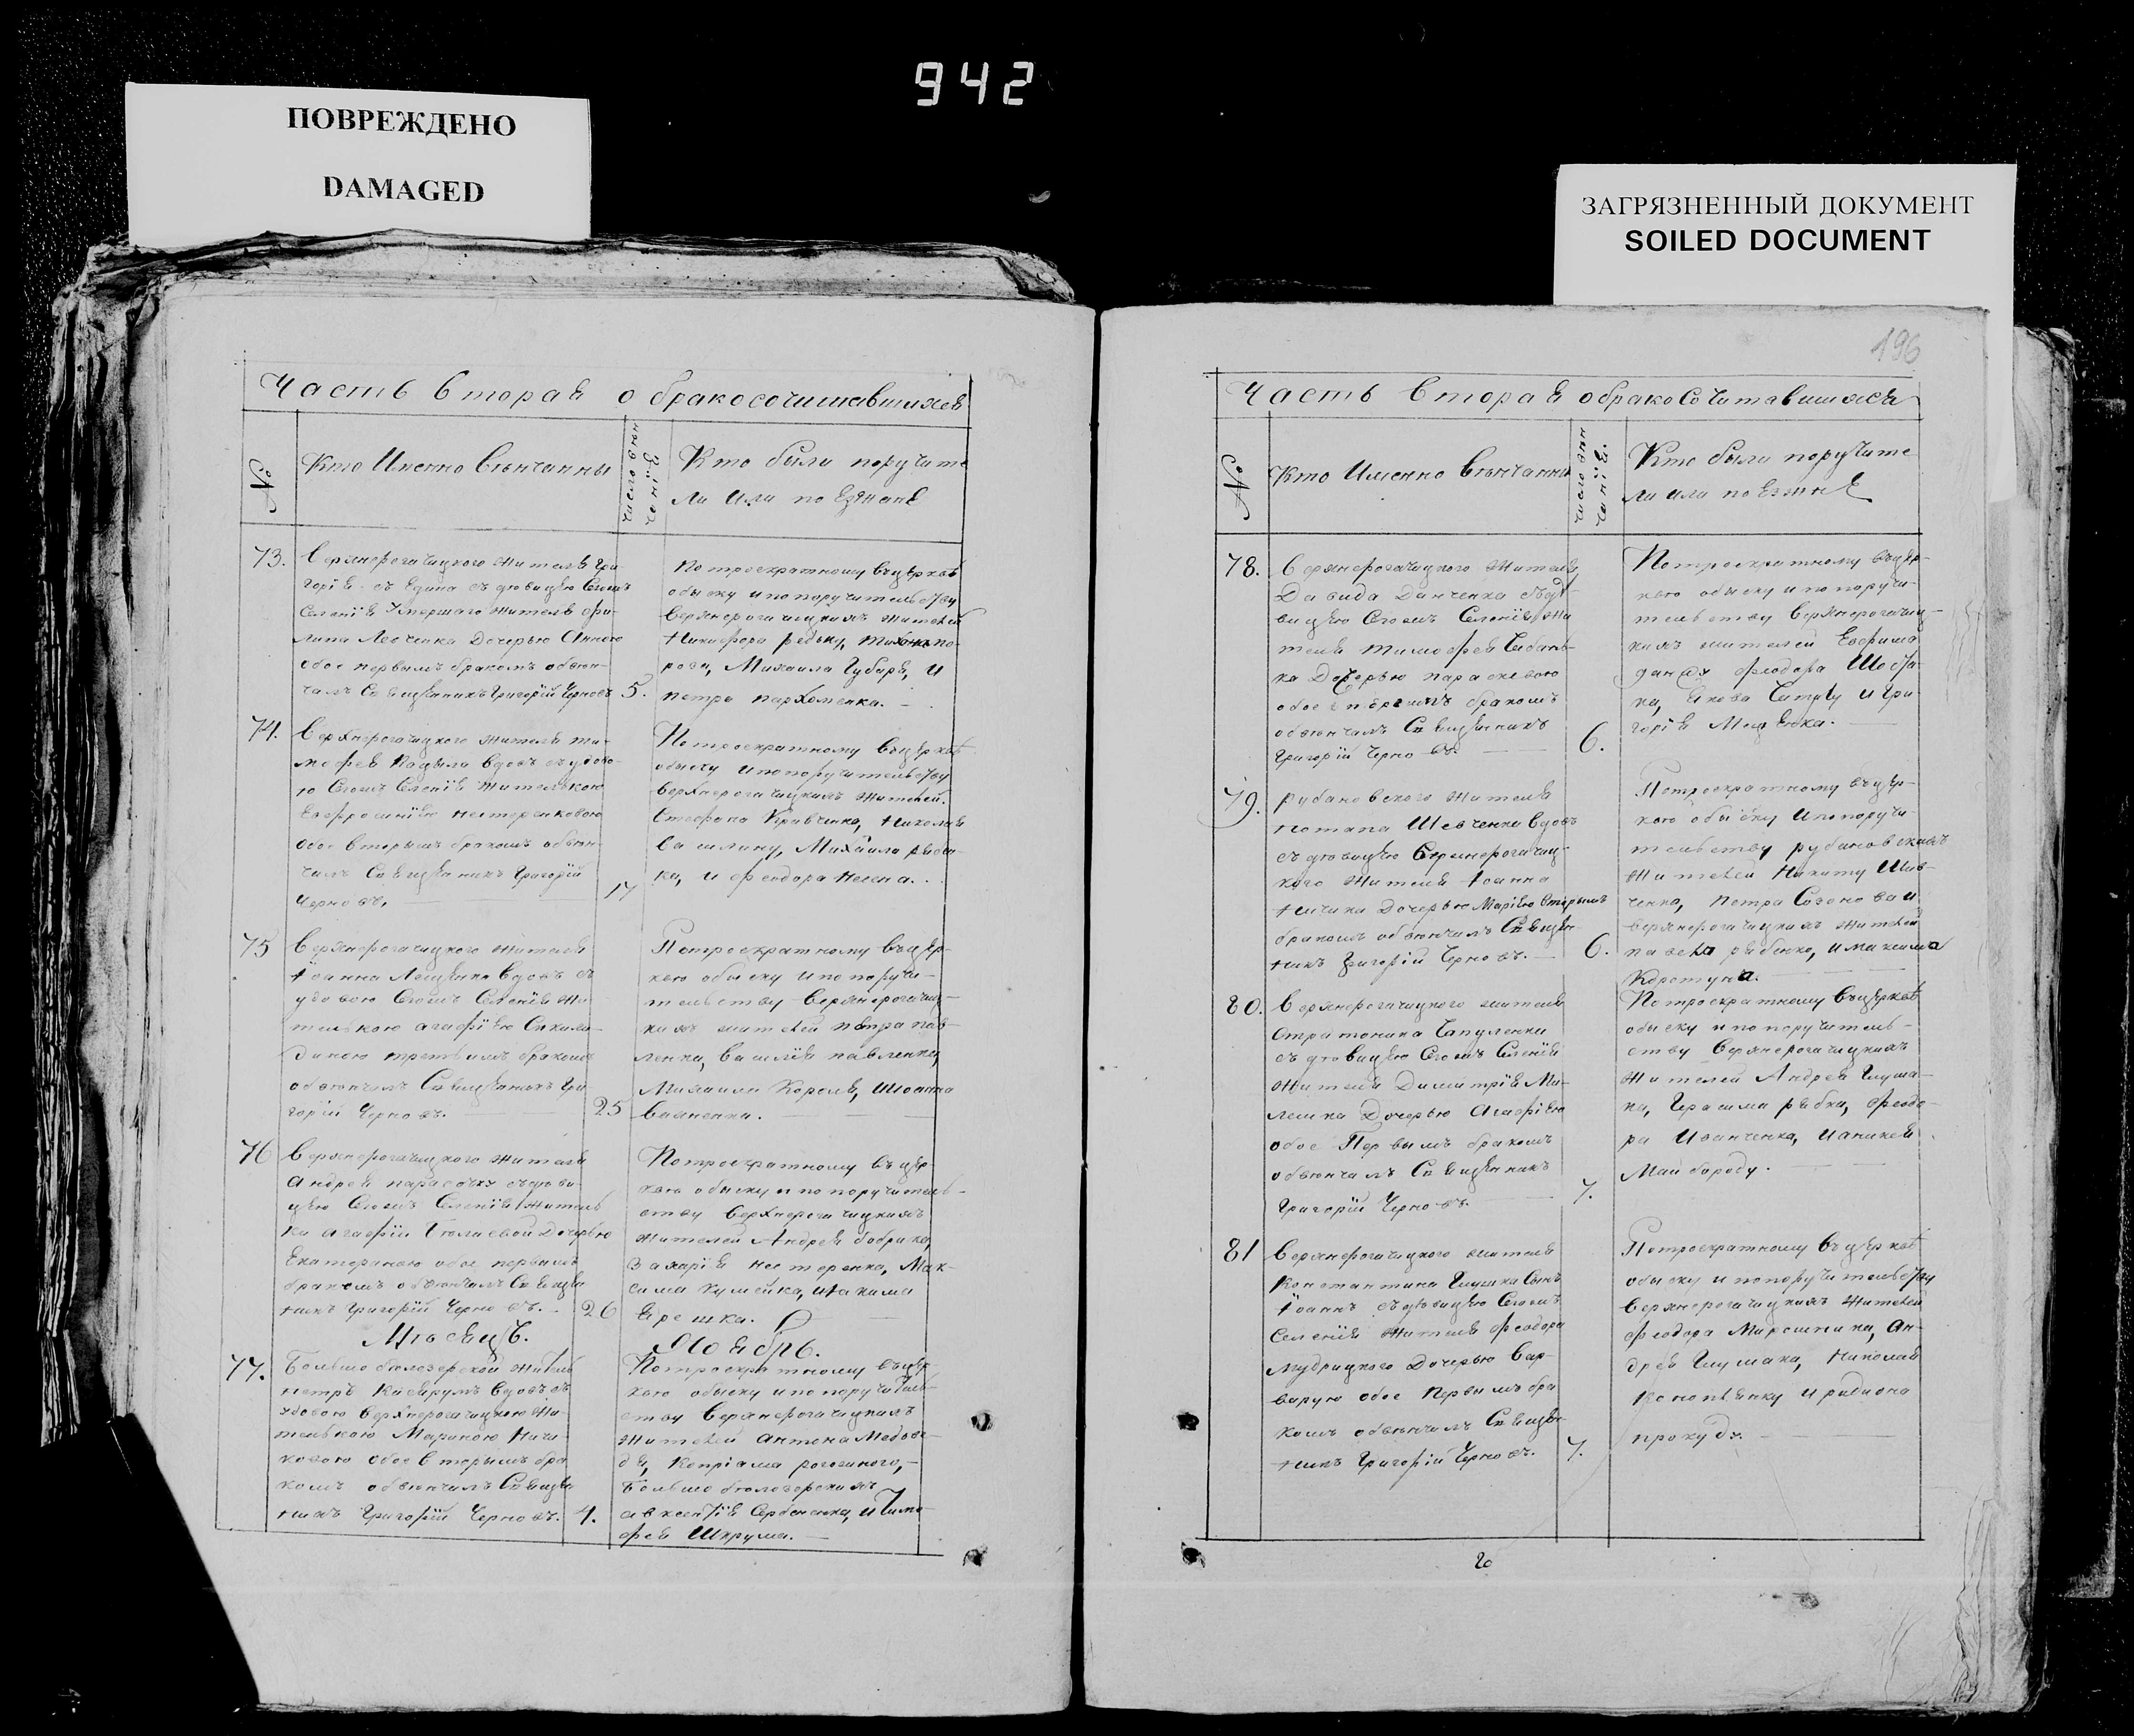 942
ПОВРЕЖДЕНО
DAMAGED
ЗАГРЯЗНЕННЫЙ ДОКУМЕНТ
SOILED DOCUMENT
196
Часть вторая о бракосочитавшихся
№
Кто Именно Венчанны
число вѣн
чанія
Кто были поручите
ли или поезжанѣ
73.
Верхнерогачицкого жителя Гри
горія
съ девицею Сегожъ
Селенія Умершаго жителя Фи
липа Левченка Дочерью Анною
обое первымъ бракомъ обвен
чалъ Священникъ Григорій Черновъ
5.
По троекратному въцеркве
обыску и по поручительству
верхнерогачицкихъ жителей
Никифора редьку,
Михаила Губаря, и
петра пархоменка.
74.
Верхнерогачицкого жителя ти
мофея Кадыла вдовъ съ удово
ю Сегожъ Селенія жителькою
Евфросиніею нестеренковою
обое вторымъ бракомъ обвен
чалъ Священникъ Григорій
Черновъ.
17
По троекратному въцеркве
обыску и по поручительству
верхнерогачицкихъ жителей.
Стефана Кривченка, Николая
Михаила
ка, и феодора
75
Верхнерогачицкого жителя
Іоанна Лещенко вдовъ съ
удовою Сегожъ Селенія жи
телькою агафіею
третьимъ бракомъ
обвенчалъ Священникъ Гри
горій Черновъ.
25
По троекратному въцер-
кве обыску и по поручи-
тельству Верхнерогачиц-
кихъ жителей петра пав-
ленка, василія павленка,
Михаила Короля, Иіоанна
76
Верхнерогачицкого жителя
Андрей съ деви
цею Сегожъ Селенія житель
ки агафіи дочерью
Екатериною обое первымъ
бракомъ обвенчалъ Священ
никъ Григорій Черновъ.
26
По троекратному въцер
кве обыску и по поручитель-
ству Верхнерогачицкихъ
жителей Андрея бобрика,
Захарія нестеренка, Мак-
сима иакима
Ярешка.
Месяцъ.
Ноябрь.
77.
Большо белозерской житель
петръ вдовъ съ
удовою Верхнерогачицкою жи
телькою Мариною
ковою обое вторымъ бра
комъ обвенчалъ Священ
никъ Григорій Черновъ.
4.
По троекратному въцер
кве обыску и по поручитель-
ству Верхнерогачицкихъ
жителей антона Медове
дя, Кипріана рогозиного,
Большо белозерскихъ
авксентія Сербененка, и Тимо
фея Шкрума.
Часть вторая о бракосочитавшихся
№
Кто Именно Венчанны
число вен
чанія.
Кто были поручите
ли или поезжанѣ
78.
Верхнерогачицкого жителя
Давида Данченка съ де
вицею Сегожъ Селенія жи
теля тимофея Чабань
ка Дочерью параскевою
обое первымъ бракомъ
обвенчалъ Священникъ
Григорій Черновъ.
6.
По троекратному въцер-
кве обыску и по поручи-
тельству верхнерогачиц-
кихъ жителей Евфима
феодора
ка, Якова и Гри
горія Мощенка.
79.
рубановского жителя
потапа Шевченка вдовъ
съ девицею Верхнерогачиц
кого жителя Іоанна
Дочерью Маріею вторымъ
бракомъ обвенчалъ Священ
никъ Григорій Черновъ.
6.
По троекратному въцер-
кве обыску и по поручи-
тельству рубановскихъ
жителей Никиту Шев-
ченка, петра Созонова и
верхнерогачицкихъ жителей
павела рябенко, и максима
Коростуна.
80.
Верхнерогачицкого жителя
Стратоника Чапуленка
съ девицею Сегожъ Селенія
жителя Димитрія Ми-
лешка Дочерью агафіею
обое Первымъ бракомъ
обвенчалъ Священникъ
Григорій Черновъ.
7.
По троекратному въцеркве
обыску и по поручитель-
ству Верхнерогачицкихъ
жителей Андрея Глуша-
ка, Герасима рябка, феодо-
ра Иванченка, Ианикея
Майбороду.
81
Верхнерогачицкого жителя
Константина Глушка Сынъ
Іоаннъ съ девицею Сегожъ
Селенія жителя феодора
мудрицкого дочерью Вар-
варую обое Первымъ бра
комъ обвенчалъ Священ
никъ Григорій Черновъ.
7.
По троекратному въцеркве
обыску и по поручительству
верхнерогачицкихъ жителей
феодора Мирошника, Ан-
дрея Глушака, Николая
Коноплянку и радиона
прокуду.